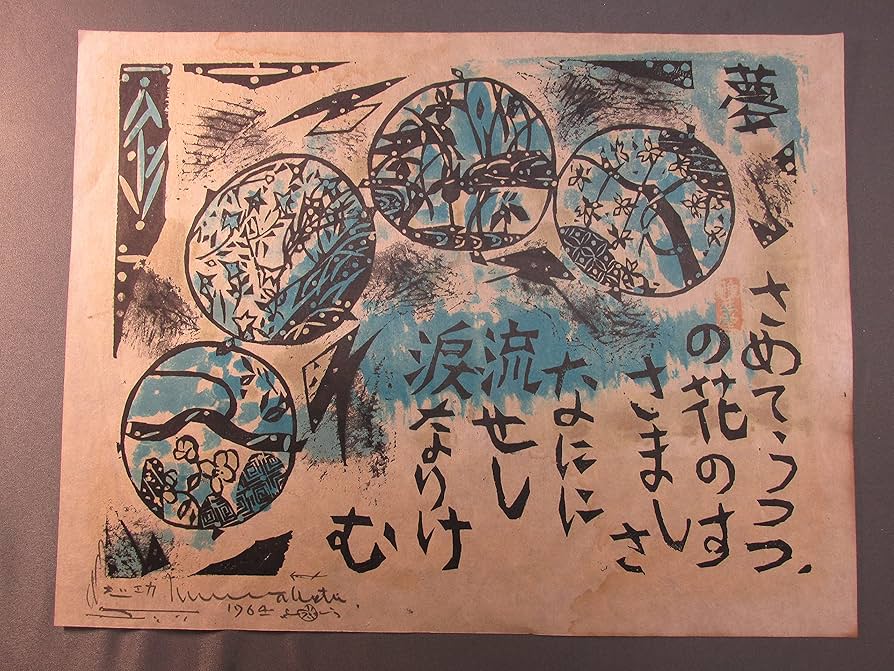 夢
さめてうつつ
の花のす
さましさ
なにに
流せし
涙なりけ
む
志功 Munakata
1964